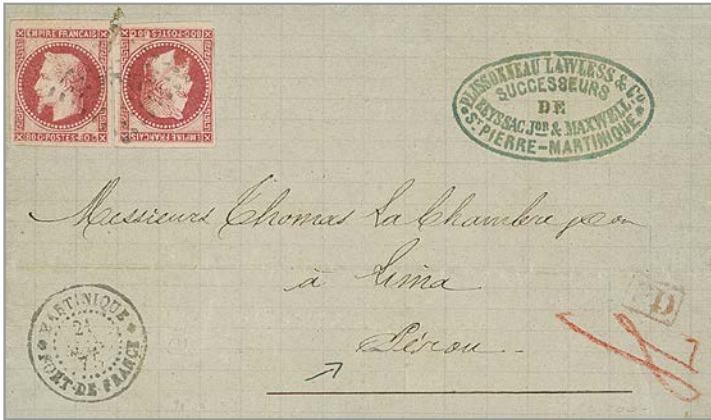 EMPIRE FRANCAIS
80C·POSTES·80C
80C·POSTES·80C
EMPIRE FRANCAIS
PLISSONNEAU LAWLESS & Co.
SUCCESSEURS
DE
REYSSAC JOR & MAXWELL
ST PIERRE-MARTINIQUE
Messieurs Thomas La Chambre
à Lima
Pérou
PD
MARTINIQUE
FORT-DE FRANCE